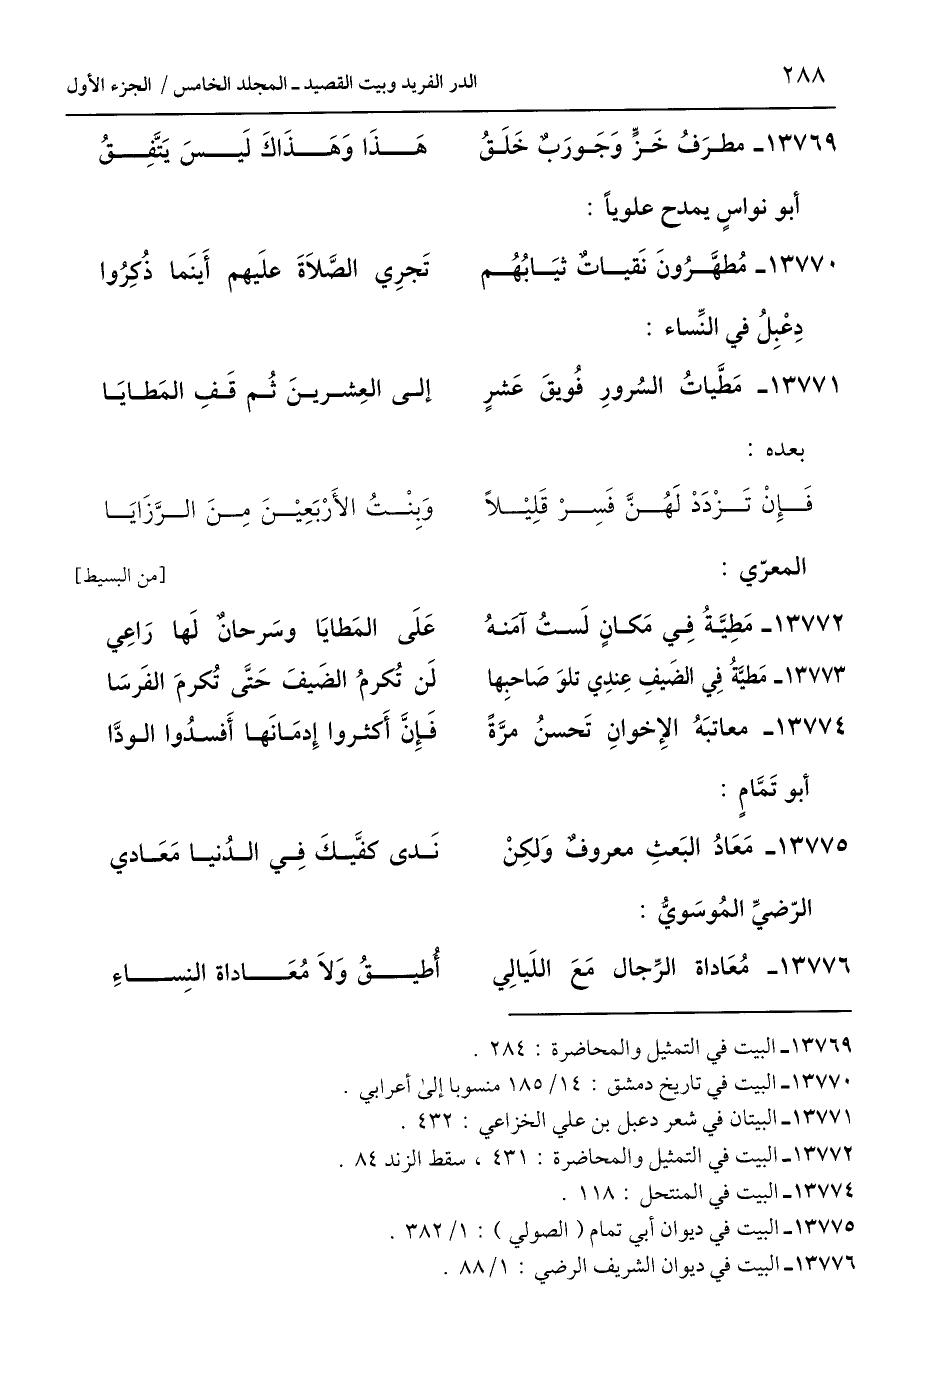 ٢٨٨ الدر الفريد وبيت القصيد ـ المجلد الخامس / الجزء الأول
١٣٧٦٩ـ مطرَفُ خَزٍّ وَجَورَبٌ خَلَقُ هَـذَا وَهَـذَاكَ لَيـسَ يَتَّفِـقُ
أبو نواسٍ يمدح علوياً :
١٣٧٧٠ـ مُطهَّرُونَ نَقيـاتٌ ثيَـابُهُـم تَجرِي الصَّلاَةَ علَيهم أَينَما ذُكِرُوا
دِعْبِلُ في النِّساء :
١٣٧٧١ـ مَطَّياتُ السُرورِ فُويقَ عَشرٍ إلى العِشرينَ ثُم قَفِ المَطايَا
بعده :
فَإِنْ تَزْدَدْ لَهُنَّ فَسِرْ قَلِيْلاً وَبِنْتُ الأَرْبَعِيْنَ مِنَ الرَّزَايَا
المعرّي : [من البسيط]
١٣٧٧٢ـ مَطِيَّةُ فِي مَكانٍ لَستُ آمَنهُ عَلَى المَطايَا وسَرحانٌ لَها رَاعِي
١٣٧٧٣ـ مَطيَّةُ فِي الضَيفِ عِندِي تلوَ صَاحبِها لَن تُكرمُ الضَيفَ حَتَّى تُكرمَ الفَرسَا
١٣٧٧٤ـ معاتبَهُ الإخوانِ تَحسنُ مرَّةً فَإِنَّ أكثروا إدمَانَها أَفسدُوا الودَّا
أبو تَمَّامٍ :
١٣٧٧٥ـ مَعَادُ البَعثِ معروفٌ وَلكِنْ نَدى كفَّيكَ فِي الدُنيا مَعَادي
الرّضيِّ المُوسَويُّ :
١٣٧٧٦ـ مُعَاداة الرِّجال مَعَ اللَيالِي أُطيـقُ وَلاَ مُعَـاداة النِسـاءِ
١٣٧٦٩ـ البيت في التمثيل والمحاضرة : ٢٨٤ .
١٣٧٧٠ـ البيت في تاريخ دمشق : ١٤/ ١٨٥ منسوبا إلىٰ أعرابي .
١٣٧٧١ـ البيتان في شعر دعبل بن علي الخزاعي : ٤٣٢ .
١٣٧٧٢ـ البيت في التمثيل والمحاضرة : ٤٣١ ، سقط الزند ٨٤ .
١٣٧٧٤ـ البيت في المنتحل : ١١٨ .
١٣٧٧٥ـ البيت في ديوان أبي تمام ( الصولي ) : ١/ ٣٨٢ .
١٣٧٧٦ـ البيت في ديوان الشريف الرضي : ١/ ٨٨ .